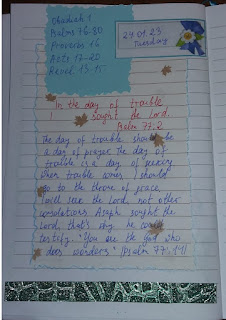 Obadiah 1
Psalms 76-80
Proverbs 16
Acts 17-20
24.01.23
Tuesday
In the day of trouble
I sought the Lord.
Psalm 77:2
The day of trouble should be
a day of prayer. The day of
trouble is a day of
When trouble comes I should
go to the throne of
I will seek the Lord, not other
consolations. Asaph sought the
Lord, that's why he could
testify: "You are the God who
does wonders" (Psalm 77:14)